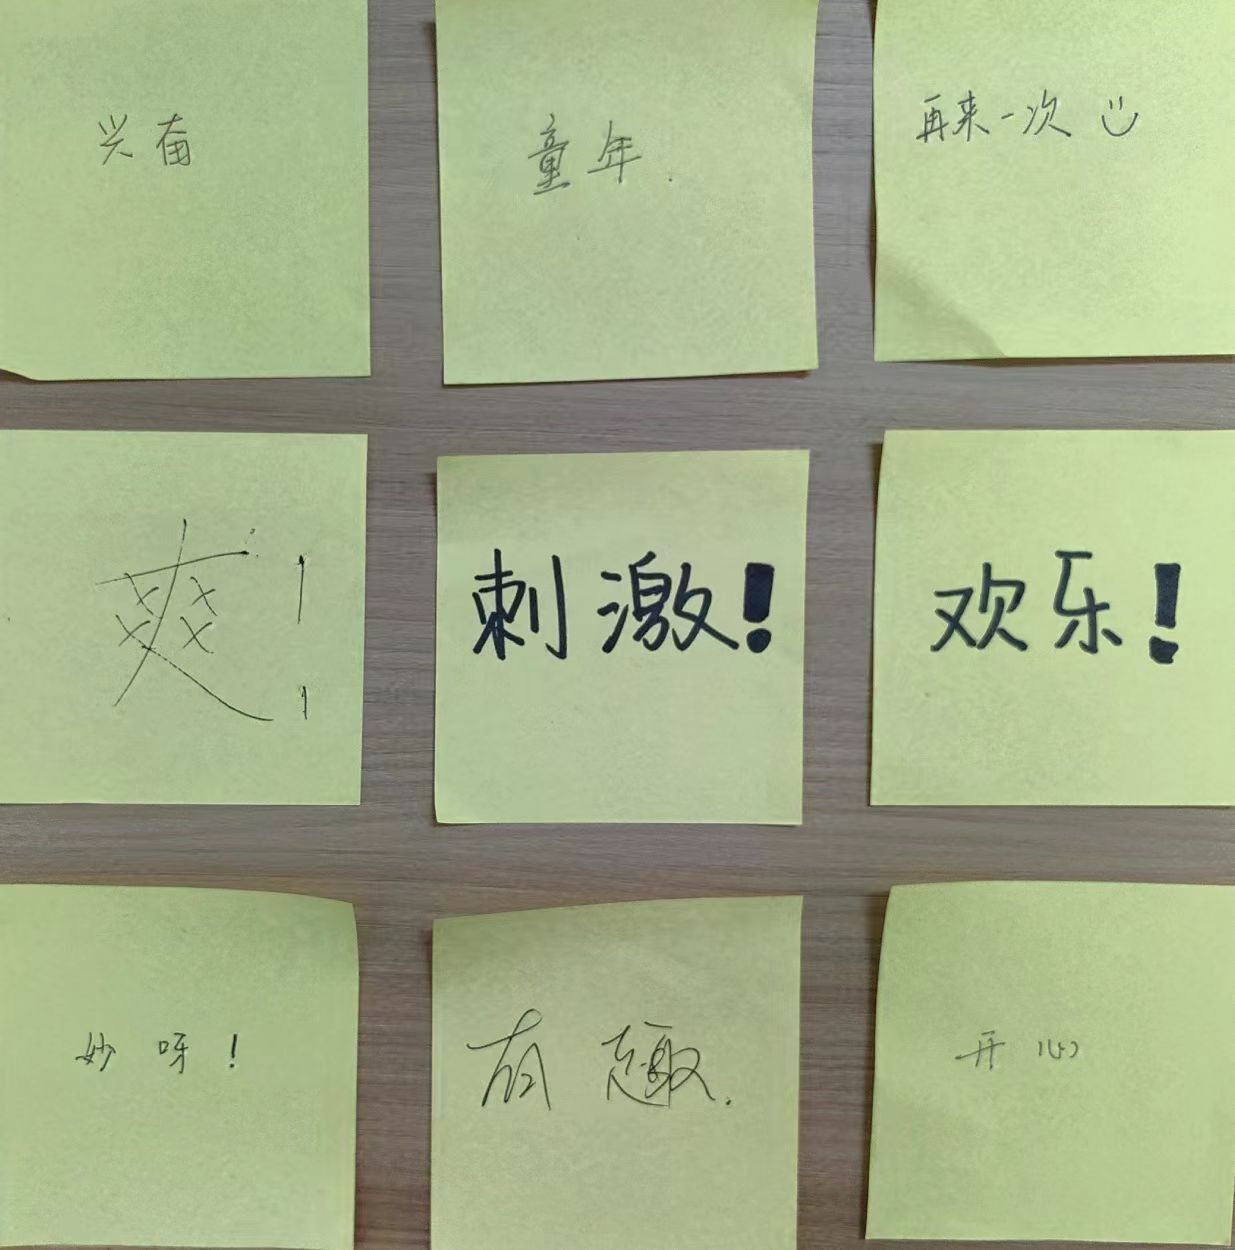 兴奋
童年.
再来一次
爽!
刺激!
欢乐!
妙呀!
有趣.
开心